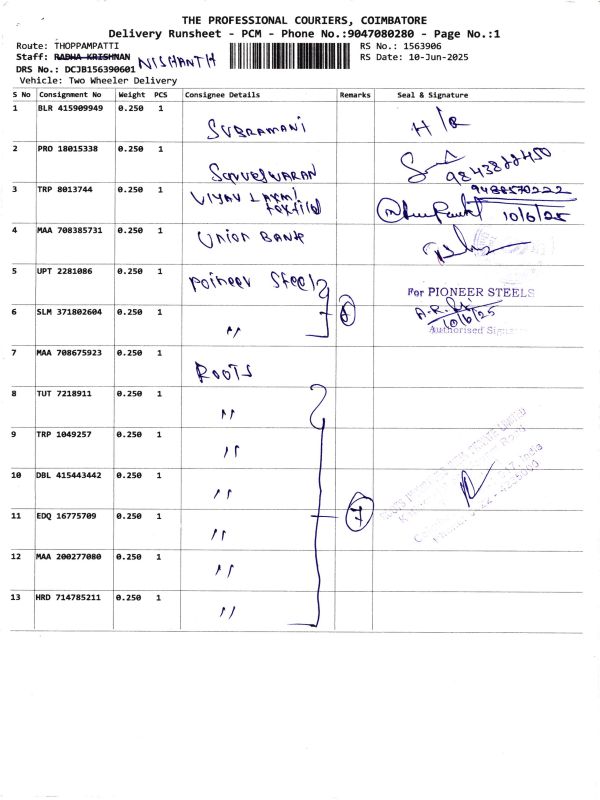 THE PROFESSIONAL COURIERS, COIMBATORE
Delivery Runsheet - PCM - Phone No.:9047080280 - Page No.:1
Route: THOPPAMPATTI
RS No.: 1563906
Staff: RADHA KRISHNAN NISHANTH
RS Date: 10-Jun-2025
DRS No.: DCJB156390601
Vehicle: Two Wheeler Delivery
S No Consignment No Weight PCS Consignee Details Remarks Seal & Signature
1 BLR 415909949 0.250 1 SUBRAMANI
2 PRO 18015338 0.250 1 Sarveswaran
9843822450
3 TRP 8013744 0.250 1 VIJAY LAXMI
9488570222
textiles
10/6/25
4 MAA 708385731 0.250 1 Union BANK
5 UPT 2281086 0.250 1 poineer Steels
For PIONEER STEELS
6 SLM 371802604 0.250 1 "
10/6/25
Authorised
7 MAA 708675923 0.250 1 ROOTS
8 TUT 7218911 0.250 1 "
9 TRP 1049257 0.250 1 "
10 DBL 415443442 0.250 1 "
11 EDQ 16775709 0.250 1 " 7
12 MAA 200277080 0.250 1 "
13 HRD 714785211 0.250 1 "